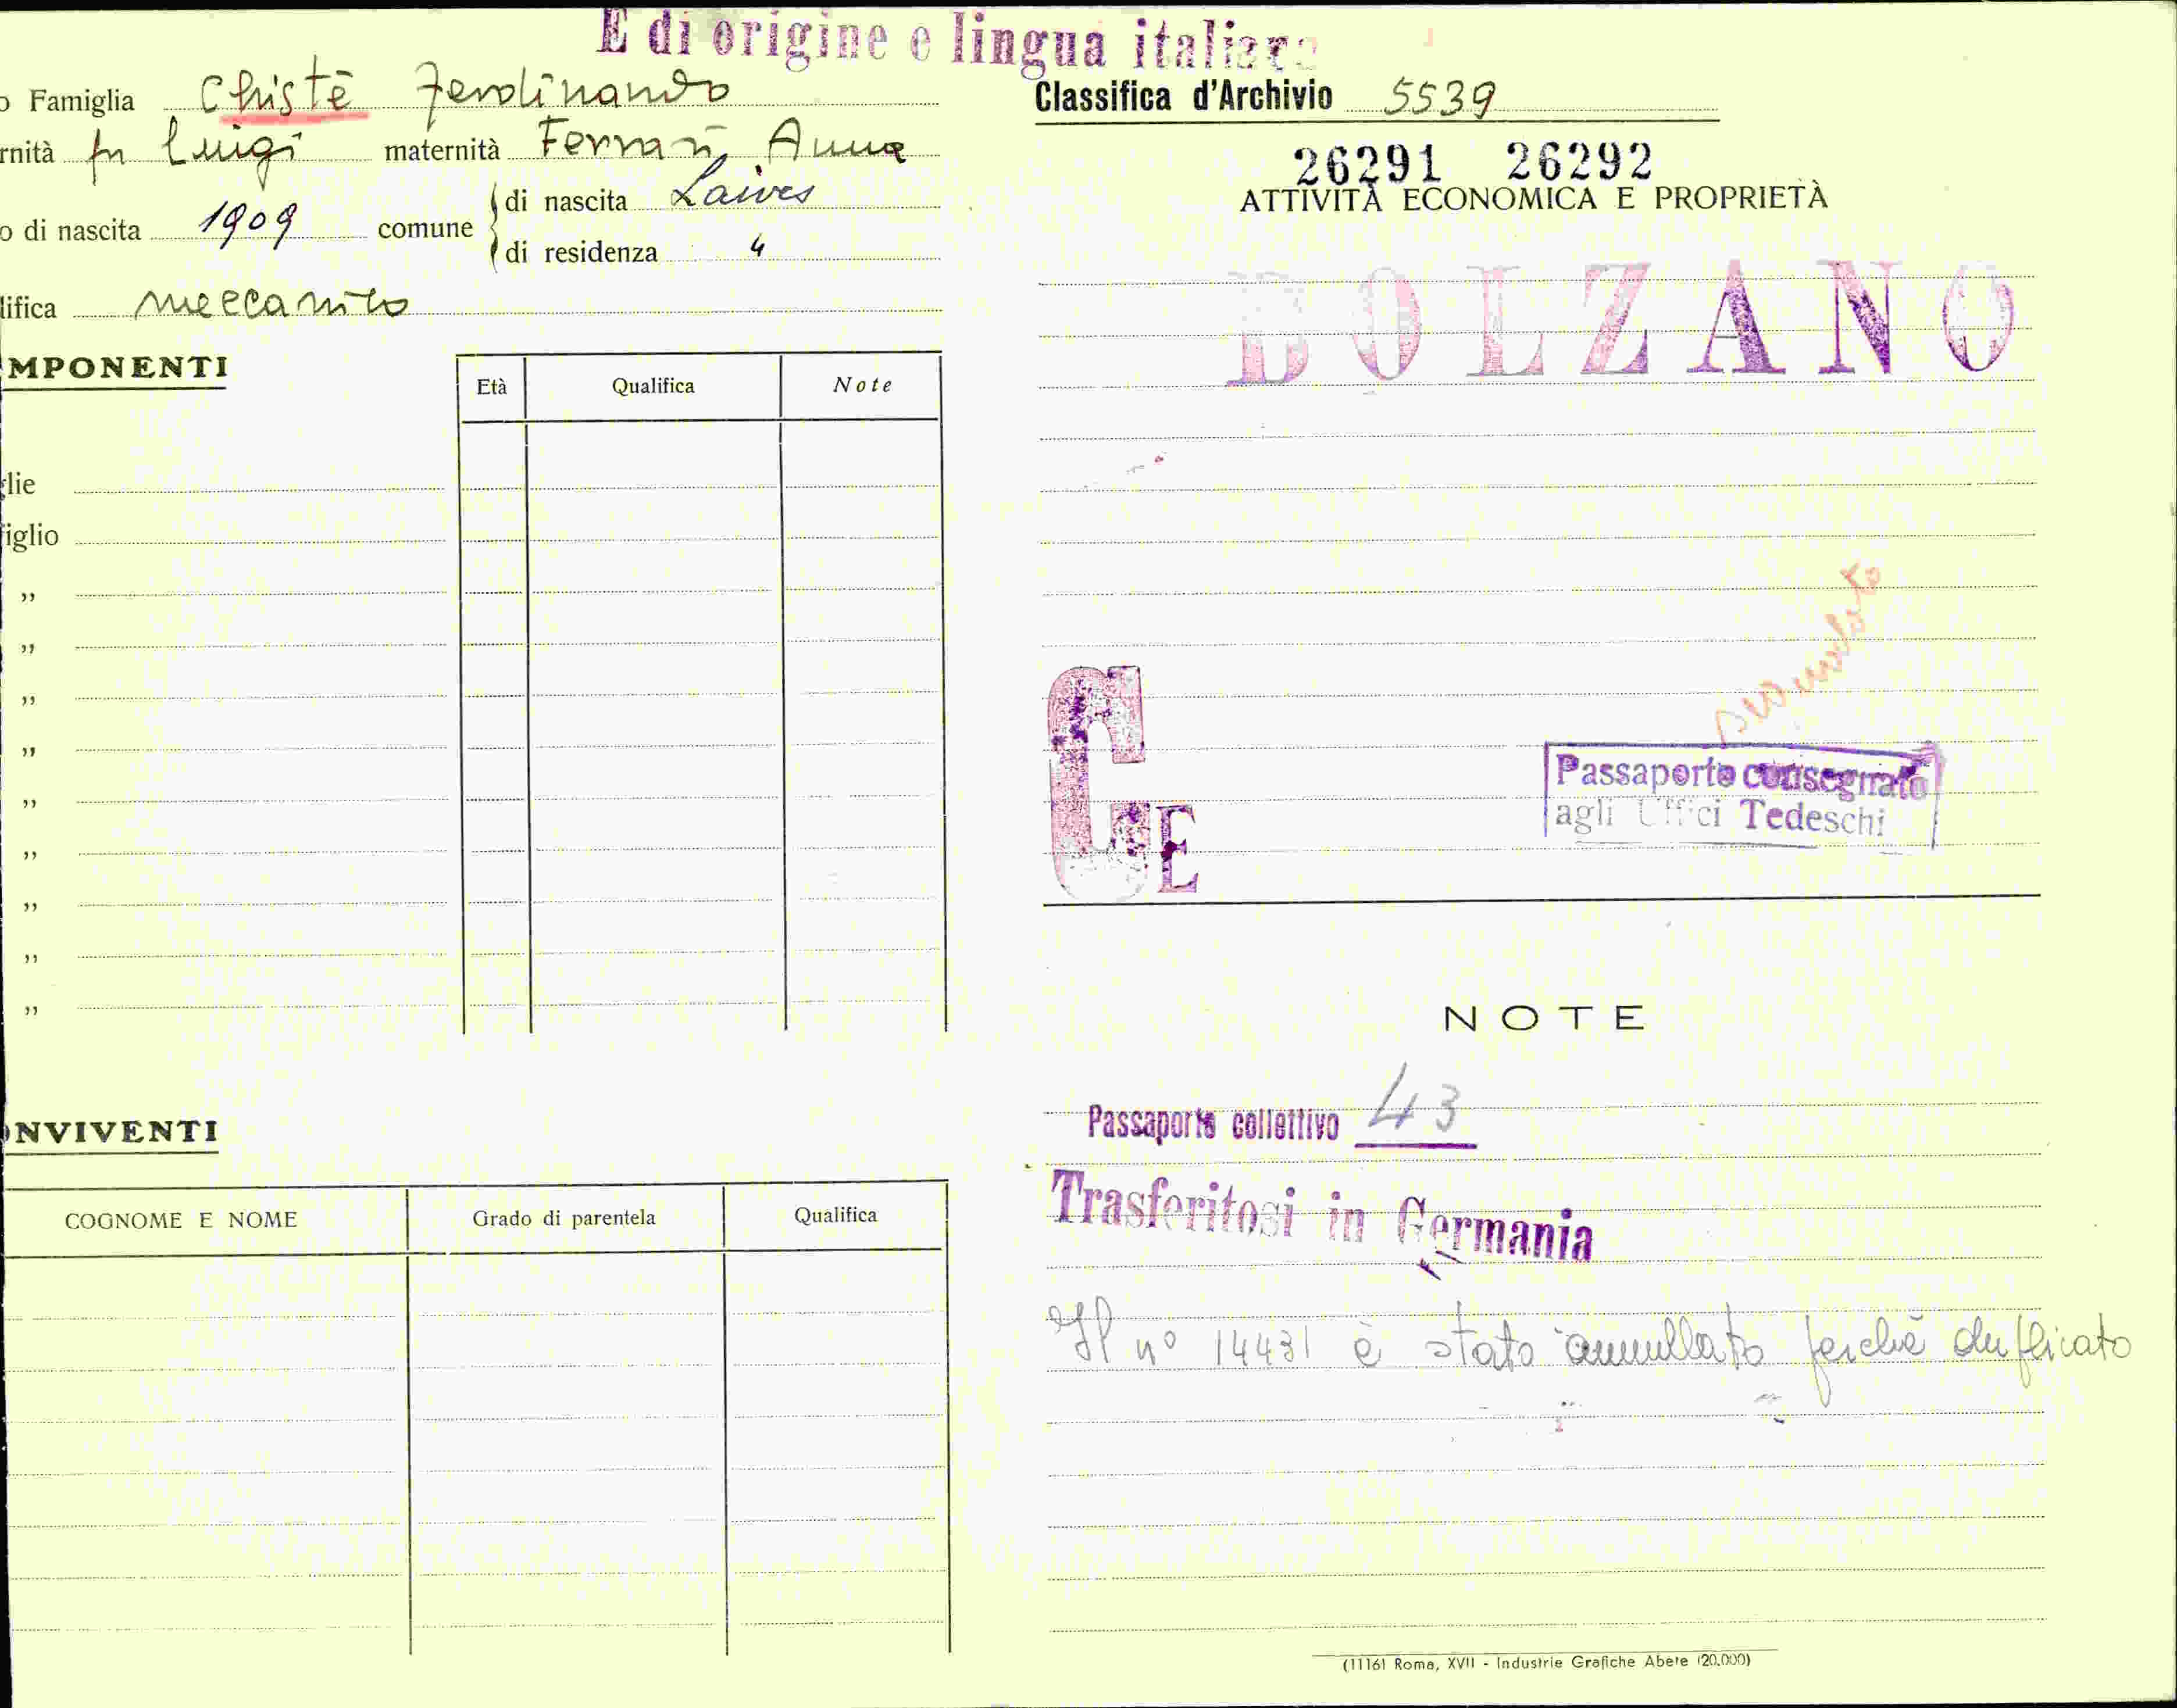 E di origine e lingua italiana
o Famiglia Chistè Ferdinando
rnità fu Luigi maternità Ferrari Anna
o di nascita 1909 comune di nascita Laives
di residenza "
lifica meccanico
MPONENTI
Età Qualifica Note
lie
iglio
"
"
"
"
"
"
"
"
"
ONVIVENTI
COGNOME E NOME Grado di parentela Qualifica
Classifica d'Archivio 5539
26291 26292
ATTIVITÀ ECONOMICA E PROPRIETÀ
BOLZANO
GE
Passaporto consegnato
agli Uffici Tedeschi
NOTE
Passaporto collettivo 43
Trasferitosi in Germania
Il n° 14431 è stato annullato perchè duplicato
(1116) Roma, XVII - Industrie Grafiche Abete (20.000)